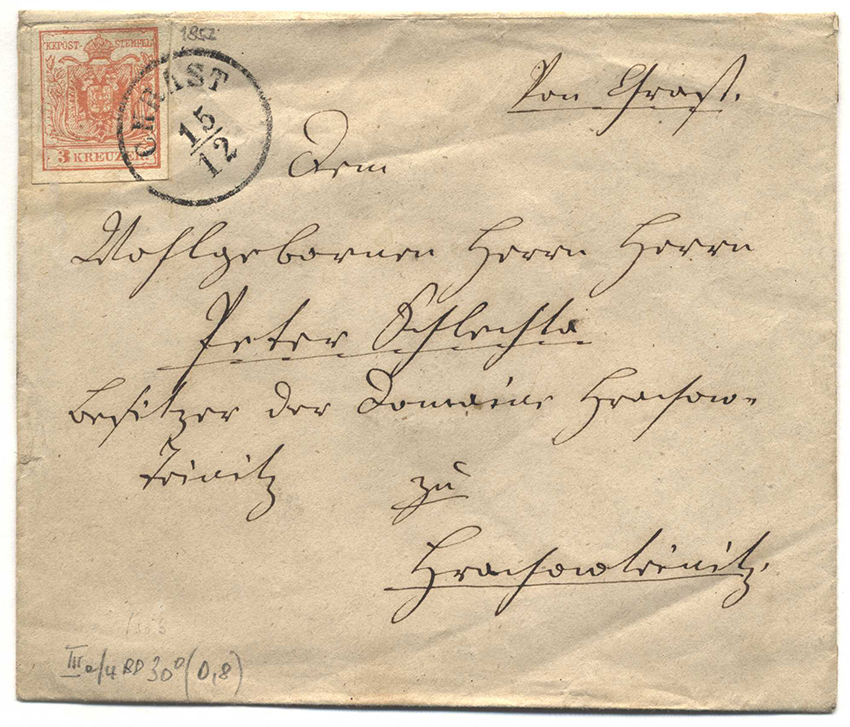 KKPOST-STEMPEL
3 KREUZER
1852
CHRAST
15
12
Von Chrast.
Dem
Wohlgebornen Herrn Herrn
Peter Schlechta
Besitzer der Domaine Hrochow-
Teinitz
zu
Hrochowteinitz.
III 30 (0,8)